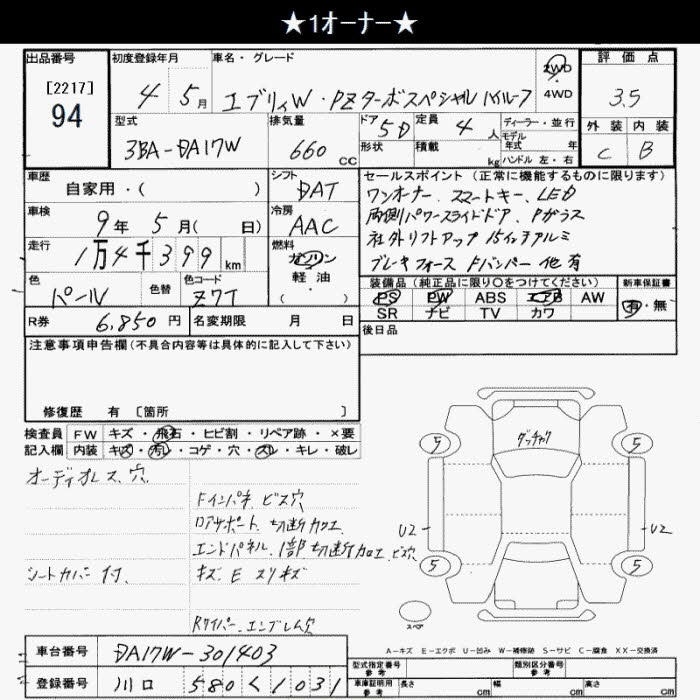 ★1オーナー★
出品番号 初度登録年月 車名・グレード 2WD 評価点
[2217] 4 5月 エブリィW・PZターボスペシャルハイルーフ 4WD 3.5
94
型式 排気量 ドア 5D 定員 4人 ディーラー・並行 外装 内装
3BA-DA17W 660cc 形状 積載 kg モデル年式 ハンドル 左・右 C B
車歴 自家用・( ) シフト DAT セールスポイント (正常に機能するものに限ります)
ワンオーナー、スマートキー、LED
車検 9年 5月( 日) 冷房 AAC 両側パワースライドドア、Pガラス
走行 1万4千399km 燃料 ガソリン 軽油・( ) 社外リフトアップ 15インチアルミ
ブレーキフォース Fバンパー 他有
色 パール 色替 色コード Z7T 装備品 (純正品に限り○をつけてください) 新車保証書
PS PW ABS エアB AW 有・無
R券 6,850円 名変期限 月 日 SR ナビ TV カワ
注意事項申告欄(不具合内容等は具体的に記入して下さい) 後日品
修復歴 有 〔箇所 〕
検査員 FW キズ・飛石・ヒビ割・リペア跡・×要
記入欄 内装 キズ・汚レ・コゲ・穴・スレ・キレ・破レ
ダッチャク
5 5
オーディオレス、穴
Fインパネ、ビス穴
ロアサポート、切断加工
U2 U2
エンドパネル、1部切断加工、ビス穴
シートカバー付、 キズ、E スリキズ
5 5
Rワイパー、エンブレム穴
スペア
A-キズ E-エクボ U-凹み W-補修跡 S-サビ C-腐食 XX-交換済
車台番号 DA17W-301403 型式指定番号 参考 類別区分番号 参考
登録番号 川口 580 く 1031 車庫証明用 参考 長さ cm 幅 cm 高さ cm